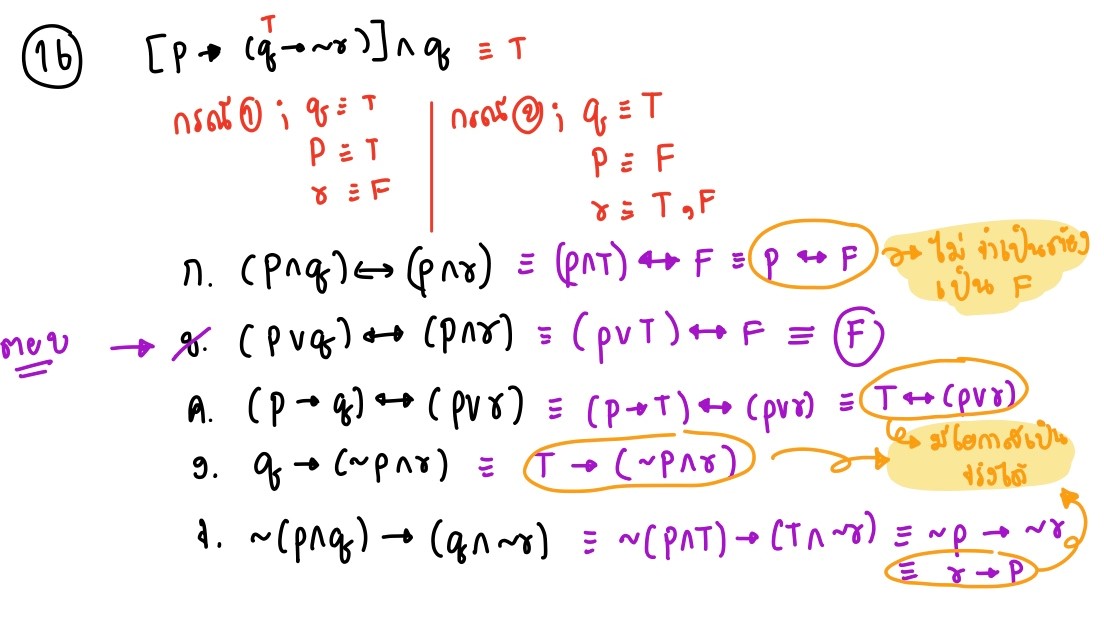 16 [P → (q → ~r)] ∧ q ≡ T
T
กรณี ① ; q ≡ T
P ≡ T
r ≡ F
กรณี ② ; q ≡ T
P ≡ F
r ≡ T , F
ก. (P∧q) ↔ (p∧r) ≡ (p∧T) ↔ F ≡ P ↔ F → ไม่จำเป็นต้อง
เป็น F
ตอบ → ข. (P∨q) ↔ (P∧r) ≡ (P∨T) ↔ F ≡ F
ค. (P → q) ↔ (P∨r) ≡ (P → T) ↔ (P∨r) ≡ T ↔ (P∨r)
ง. q → (~P∧r) ≡ T → (~P∧r) → มีโอกาสเป็น
จริงได้
จ. ~(P∧q) → (q∧~r) ≡ ~(P∧T) → (T∧~r) ≡ ~P → ~r
≡ r → P